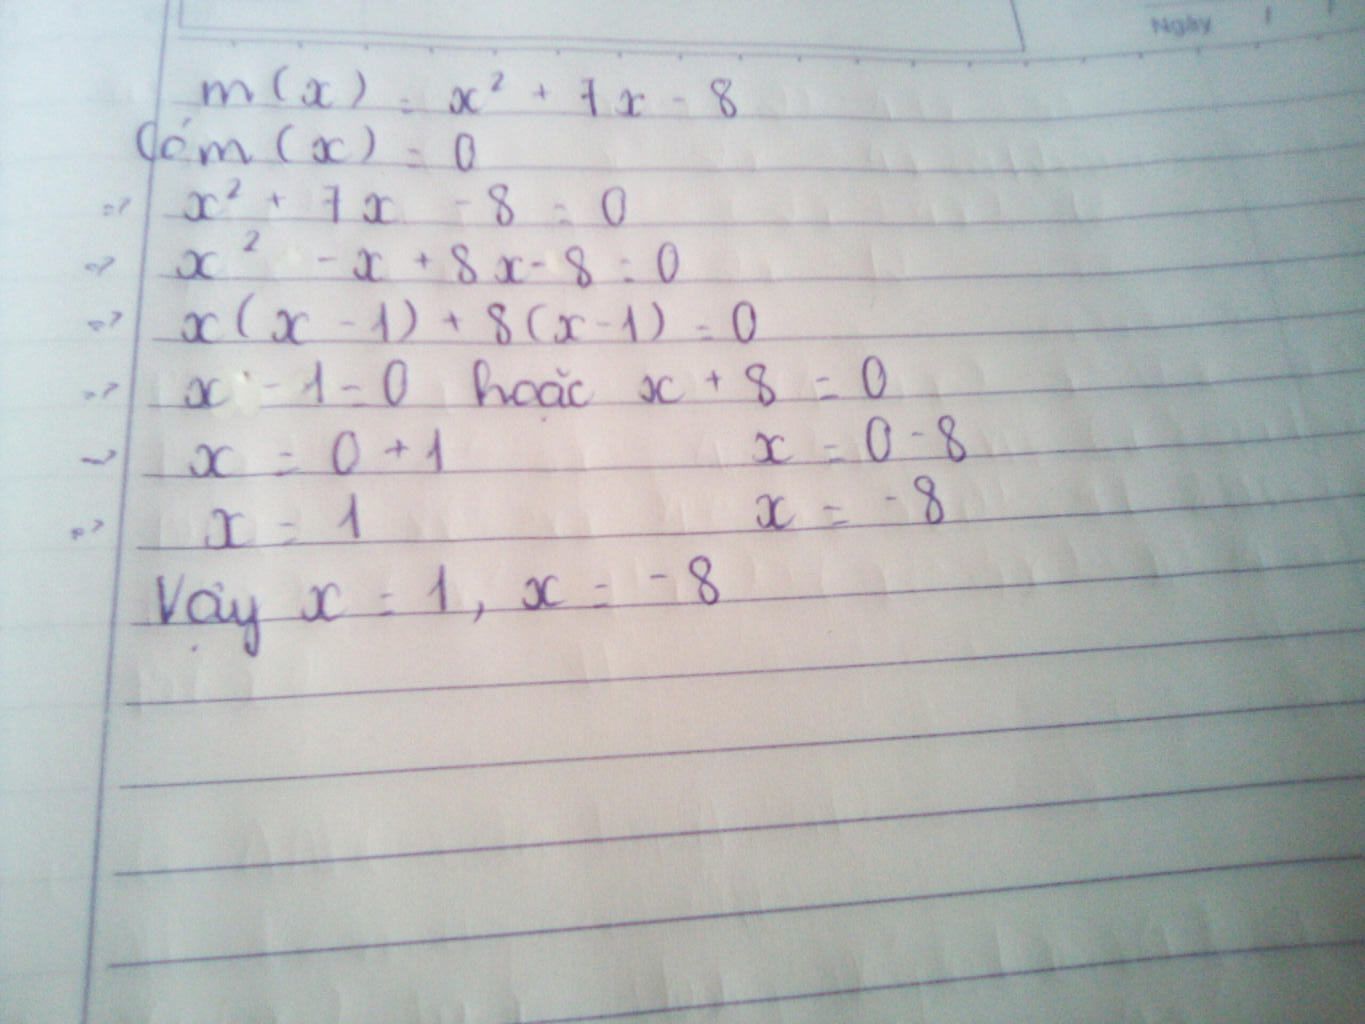 Ngày / /
m(x) = x² + 7x - 8
Có m(x) = 0
=> x² + 7x - 8 = 0
=> x² - x + 8x - 8 = 0
=> x(x - 1) + 8(x - 1) = 0
=> x - 1 = 0 hoặc x + 8 = 0
=> x = 0 + 1 x = 0 - 8
=> x = 1 x = - 8
Vậy x = 1, x = - 8